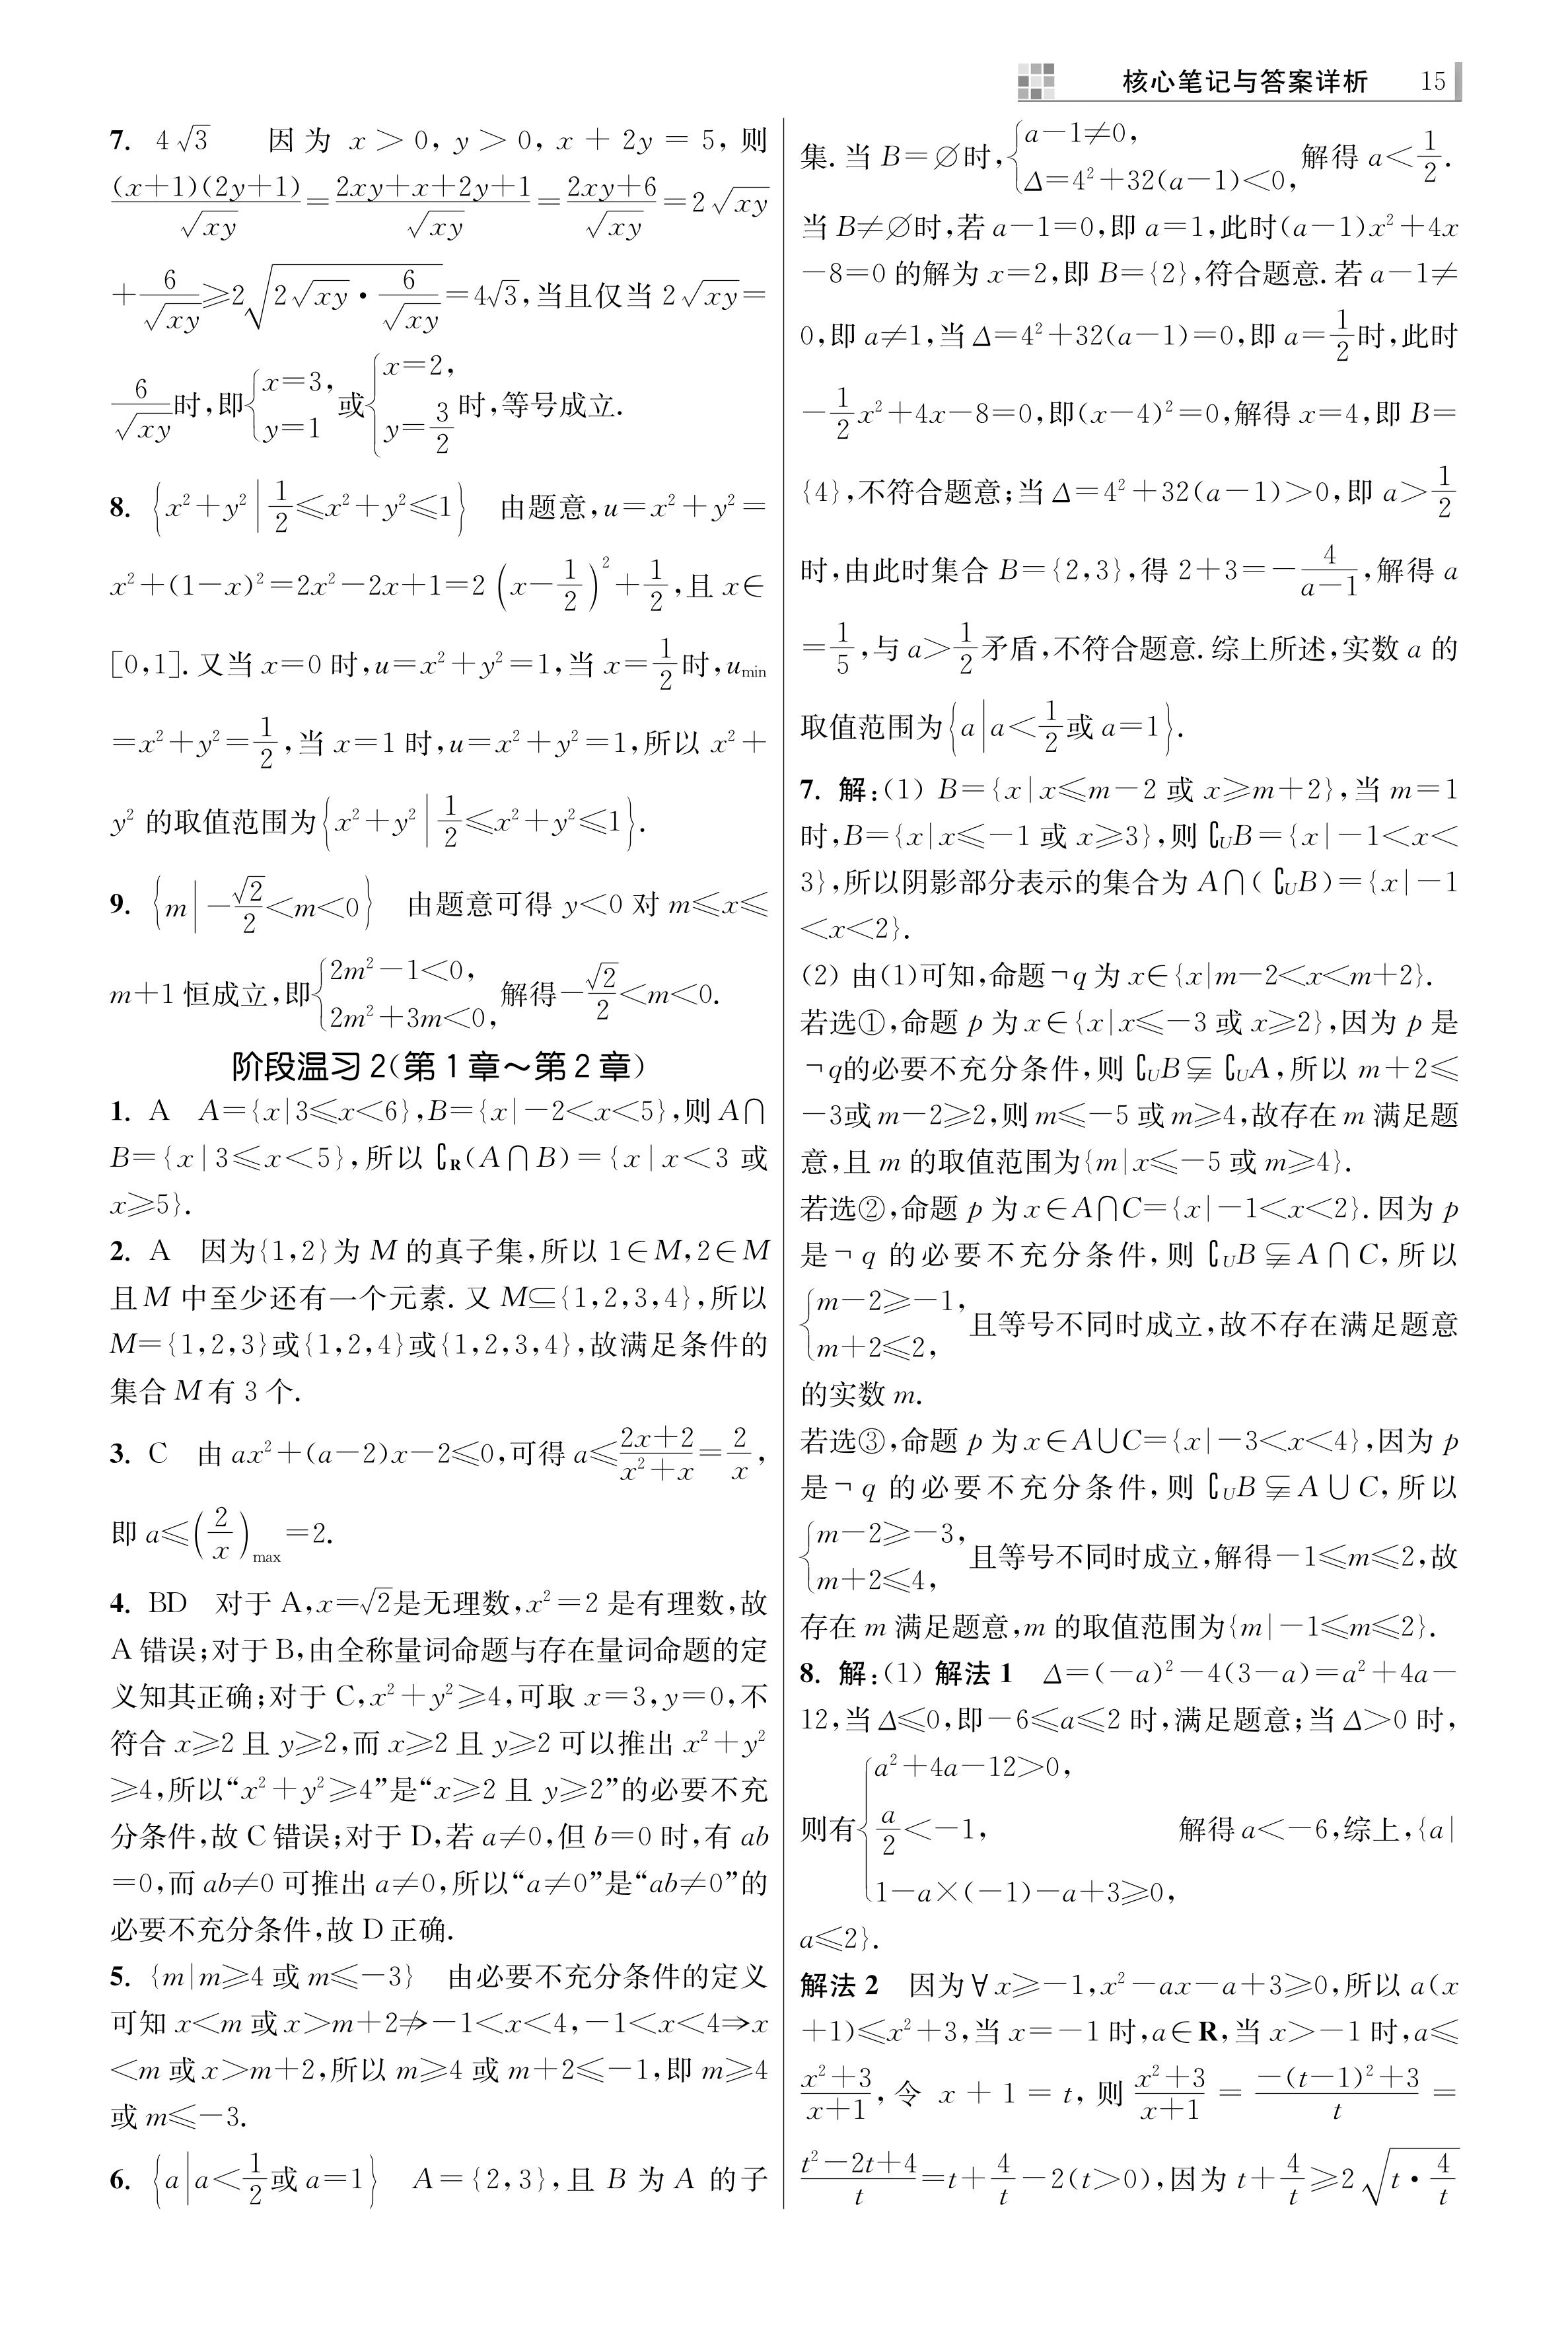 核心笔记与答案详析 15
7. 4√3 因为 x>0, y>0, x+2y=5, 则
(x+1)(2y+1)/√xy=2xy+x+2y+1/√xy=2xy+6/√xy=2√xy
+6/√xy≥2√(2√xy·6/√xy)=4√3,当且仅当 2√xy=
6/√xy时,即{x=3, y=1 或{x=2, y=3/2 时,等号成立.
8. {x²+y²|1/2≤x²+y²≤1} 由题意,u=x²+y²=
x²+(1-x)²=2x²-2x+1=2(x-1/2)²+1/2,且 x∈
[0,1]. 又当 x=0 时,u=x²+y²=1,当 x=1/2时,u_min
=x²+y²=1/2,当 x=1 时,u=x²+y²=1,所以 x²+
y² 的取值范围为{x²+y²|1/2≤x²+y²≤1}.
9. {m|-√2/2<m<0} 由题意可得 y<0 对 m≤x≤
m+1 恒成立,即{2m²-1<0, 2m²+3m<0, 解得-√2/2<m<0.
阶段温习 2(第 1 章～第 2 章)
1. A A={x|3≤x<6},B={x|-2<x<5},则 A∩
B={x|3≤x<5},所以 ∁R(A∩B)={x|x<3 或
x≥5}.
2. A 因为{1,2}为 M 的真子集,所以 1∈M,2∈M
且 M 中至少还有一个元素. 又 M⊆{1,2,3,4},所以
M={1,2,3}或{1,2,4}或{1,2,3,4},故满足条件的
集合 M 有 3 个.
3. C 由 ax²+(a-2)x-2≤0,可得 a≤2x+2/x²+x=2/x,
即 a≤(2/x)max=2.
4. BD 对于 A,x=√2是无理数,x²=2 是有理数,故
A 错误;对于 B,由全称量词命题与存在量词命题的定
义知其正确;对于 C,x²+y²≥4,可取 x=3,y=0,不
符合 x≥2 且 y≥2,而 x≥2 且 y≥2 可以推出 x²+y²
≥4,所以“x²+y²≥4”是“x≥2 且 y≥2”的必要不充
分条件,故 C 错误;对于 D,若 a≠0,但 b=0 时,有 ab
=0,而 ab≠0 可推出 a≠0,所以“a≠0”是“ab≠0”的
必要不充分条件,故 D 正确.
5. {m|m≥4 或 m≤-3} 由必要不充分条件的定义
可知 x<m 或 x>m+2⇏-1<x<4,-1<x<4⇒x
<m 或 x>m+2,所以 m≥4 或 m+2≤-1,即 m≥4
或 m≤-3.
6. {a|a<1/2或 a=1} A={2,3},且 B 为 A 的子
集. 当 B=∅时,{a-1≠0, Δ=4²+32(a-1)<0, 解得 a<1/2.
当 B≠∅时,若 a-1=0,即 a=1,此时(a-1)x²+4x
-8=0 的解为 x=2,即 B={2},符合题意. 若 a-1≠
0,即 a≠1,当 Δ=4²+32(a-1)=0,即 a=1/2时,此时
-1/2x²+4x-8=0,即(x-4)²=0,解得 x=4,即 B=
{4},不符合题意;当 Δ=4²+32(a-1)>0,即 a>1/2
时,由此时集合 B={2,3},得 2+3=-4/a-1,解得 a
=1/5,与 a>1/2矛盾,不符合题意. 综上所述,实数 a 的
取值范围为{a|a<1/2或 a=1}.
7. 解:(1) B={x|x≤m-2 或 x≥m+2},当 m=1
时,B={x|x≤-1 或 x≥3},则 ∁UB={x|-1<x<
3},所以阴影部分表示的集合为 A∩(∁UB)={x|-1
<x<2}.
(2) 由(1)可知,命题¬q 为 x∈{x|m-2<x<m+2}.
若选①,命题 p 为 x∈{x|x≤-3 或 x≥2},因为 p 是
¬q的必要不充分条件,则 ∁UB⫋∁UA,所以 m+2≤
-3或 m-2≥2,则 m≤-5 或 m≥4,故存在 m 满足题
意,且 m 的取值范围为{m|x≤-5 或 m≥4}.
若选②,命题 p 为 x∈A∩C={x|-1<x<2}. 因为 p
是¬q 的必要不充分条件,则 ∁UB⫋A∩C,所以
{m-2≥-1, m+2≤2, 且等号不同时成立,故不存在满足题意
的实数 m.
若选③,命题 p 为 x∈A∪C={x|-3<x<4},因为 p
是¬q 的必要不充分条件,则 ∁UB⫋A∪C,所以
{m-2≥-3, m+2≤4, 且等号不同时成立,解得-1≤m≤2,故
存在 m 满足题意,m 的取值范围为{m|-1≤m≤2}.
8. 解:(1) 解法 1 Δ=(-a)²-4(3-a)=a²+4a-
12,当 Δ≤0,即-6≤a≤2 时,满足题意;当 Δ>0 时,
则有{a²+4a-12>0, a/2<-1, 1-a×(-1)-a+3≥0, 解得 a<-6,综上,{a|
a≤2}.
解法 2 因为∀x≥-1,x²-ax-a+3≥0,所以 a(x
+1)≤x²+3,当 x=-1 时,a∈R,当 x>-1 时,a≤
x²+3/x+1, 令 x+1=t, 则 x²+3/x+1=-(t-1)²+3/t=
t²-2t+4/t=t+4/t-2(t>0),因为 t+4/t≥2√(t·4/t)